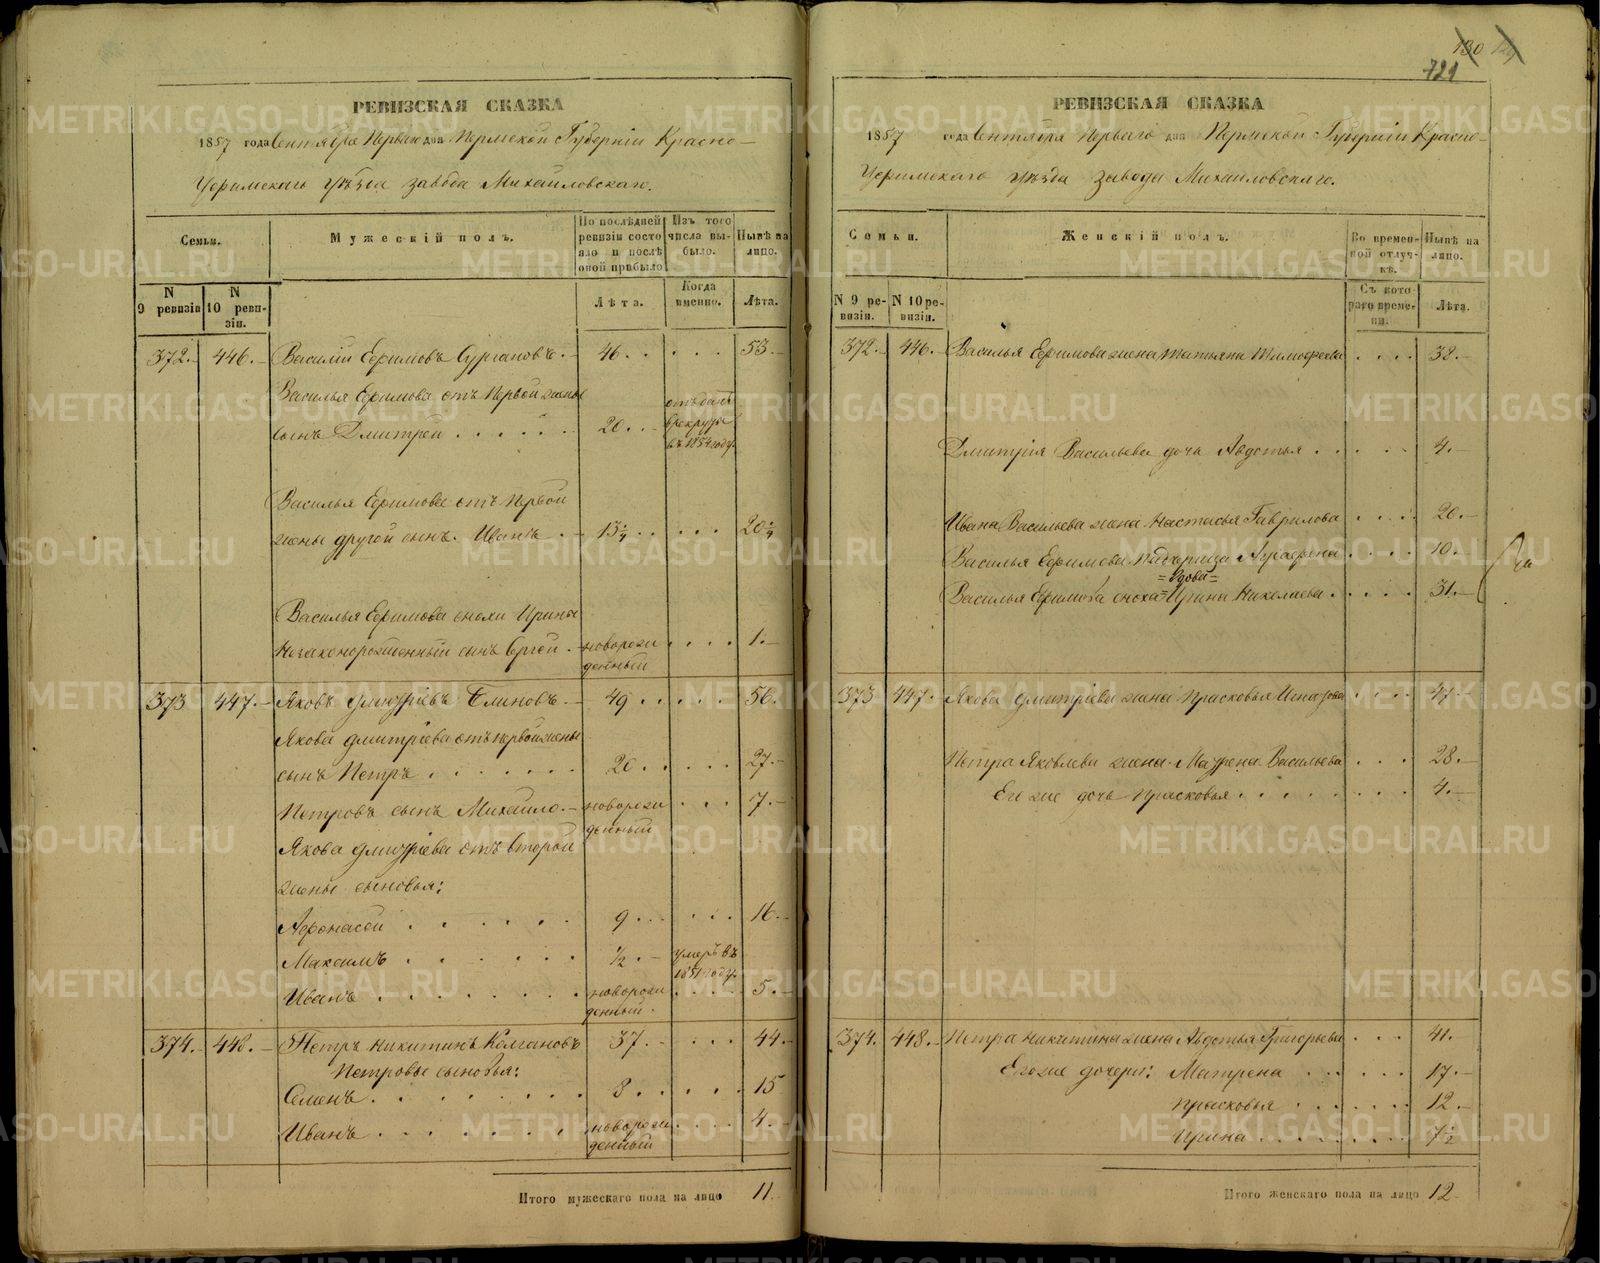 РЕВИЗСКАЯ СКАЗКА
1857 года Сентября Перваго дня Пермской Губерніи Красно-
Уфимскаго уѣзда завода Михайловскаго.
Семьи.
Мужескій полъ.
По послѣдней ревизіи состояло и послѣ оной прибыло
Изъ того числа выбыло.
Нынѣ на лицо.
N 9 ревизіи
N 10 ревизіи.
Лѣта.
Когда именно.
Лѣта.
372. 446. Василій Ефимовъ Сургановъ. 46. 53.
Василья Ефимова отъ первой жены
сынъ Дмитрей 20. отъданъ в рекруты въ 1854 году.
Василья Ефимова отъ первой
жены другой сынъ. Иванъ 13¼ 20¼
Василья Ефимова снохи Ирины
Незаконорожденный сынъ Сергей новорожденный 1.
373 447. Яковъ Дмитріевъ Блиновъ 49 56.
Якова Дмитріева отъ первой жены
сынъ Петръ 20. 27.
Петровъ сынъ Михайло новорожденный 7.
Якова Дмитріева отъ второй
жены сыновья:
Афонасей 9 16.
Максимъ ½ умеръ въ 1851 году.
Иванъ новорожденный. 5.
374. 448. Петръ Никитинъ Колгановъ 37. 44.
Петровы сыновья:
Семенъ 8 15
Иванъ новорожденный 4.
Итого мужескаго пола на лицо 11.
130
721
РЕВИЗСКАЯ СКАЗКА
1857 года Сентября Перваго дня Пермской Губерніи Красно-
Уфимскаго уѣзда завода Михайловскаго.
Семьи.
Женскій полъ.
Во временной отлучкѣ.
Нынѣ на лицо.
N 9 ревизіи.
N 10 ревизіи.
Съ котораго времени.
Лѣта.
372. 446. Василья Ефимова жена Татьяна Тимофеева 38.
Дмитрія Васильева дочь Авдотья 4.
Ивана Васильева жена Настасья Гаврилова 20.
Василья Ефимова падчерица Аграфена 10.
=Вдова=
Василья Ефимова сноха Ирина Николаева 31.
373 447. Якова Дмитріева жена Прасковья 47.
Петра Яковлева жена Маурена Васильева 28.
Его же дочь Прасковья 4.
374. 448. Петра Никитина жена Авдотья Григорьева 41.
Его же дочери: Матрена 17.
Прасковья 12.
Ирина 7½
Итого женскаго пола на лицо 12.
METRIKI.GASO-URAL.RU